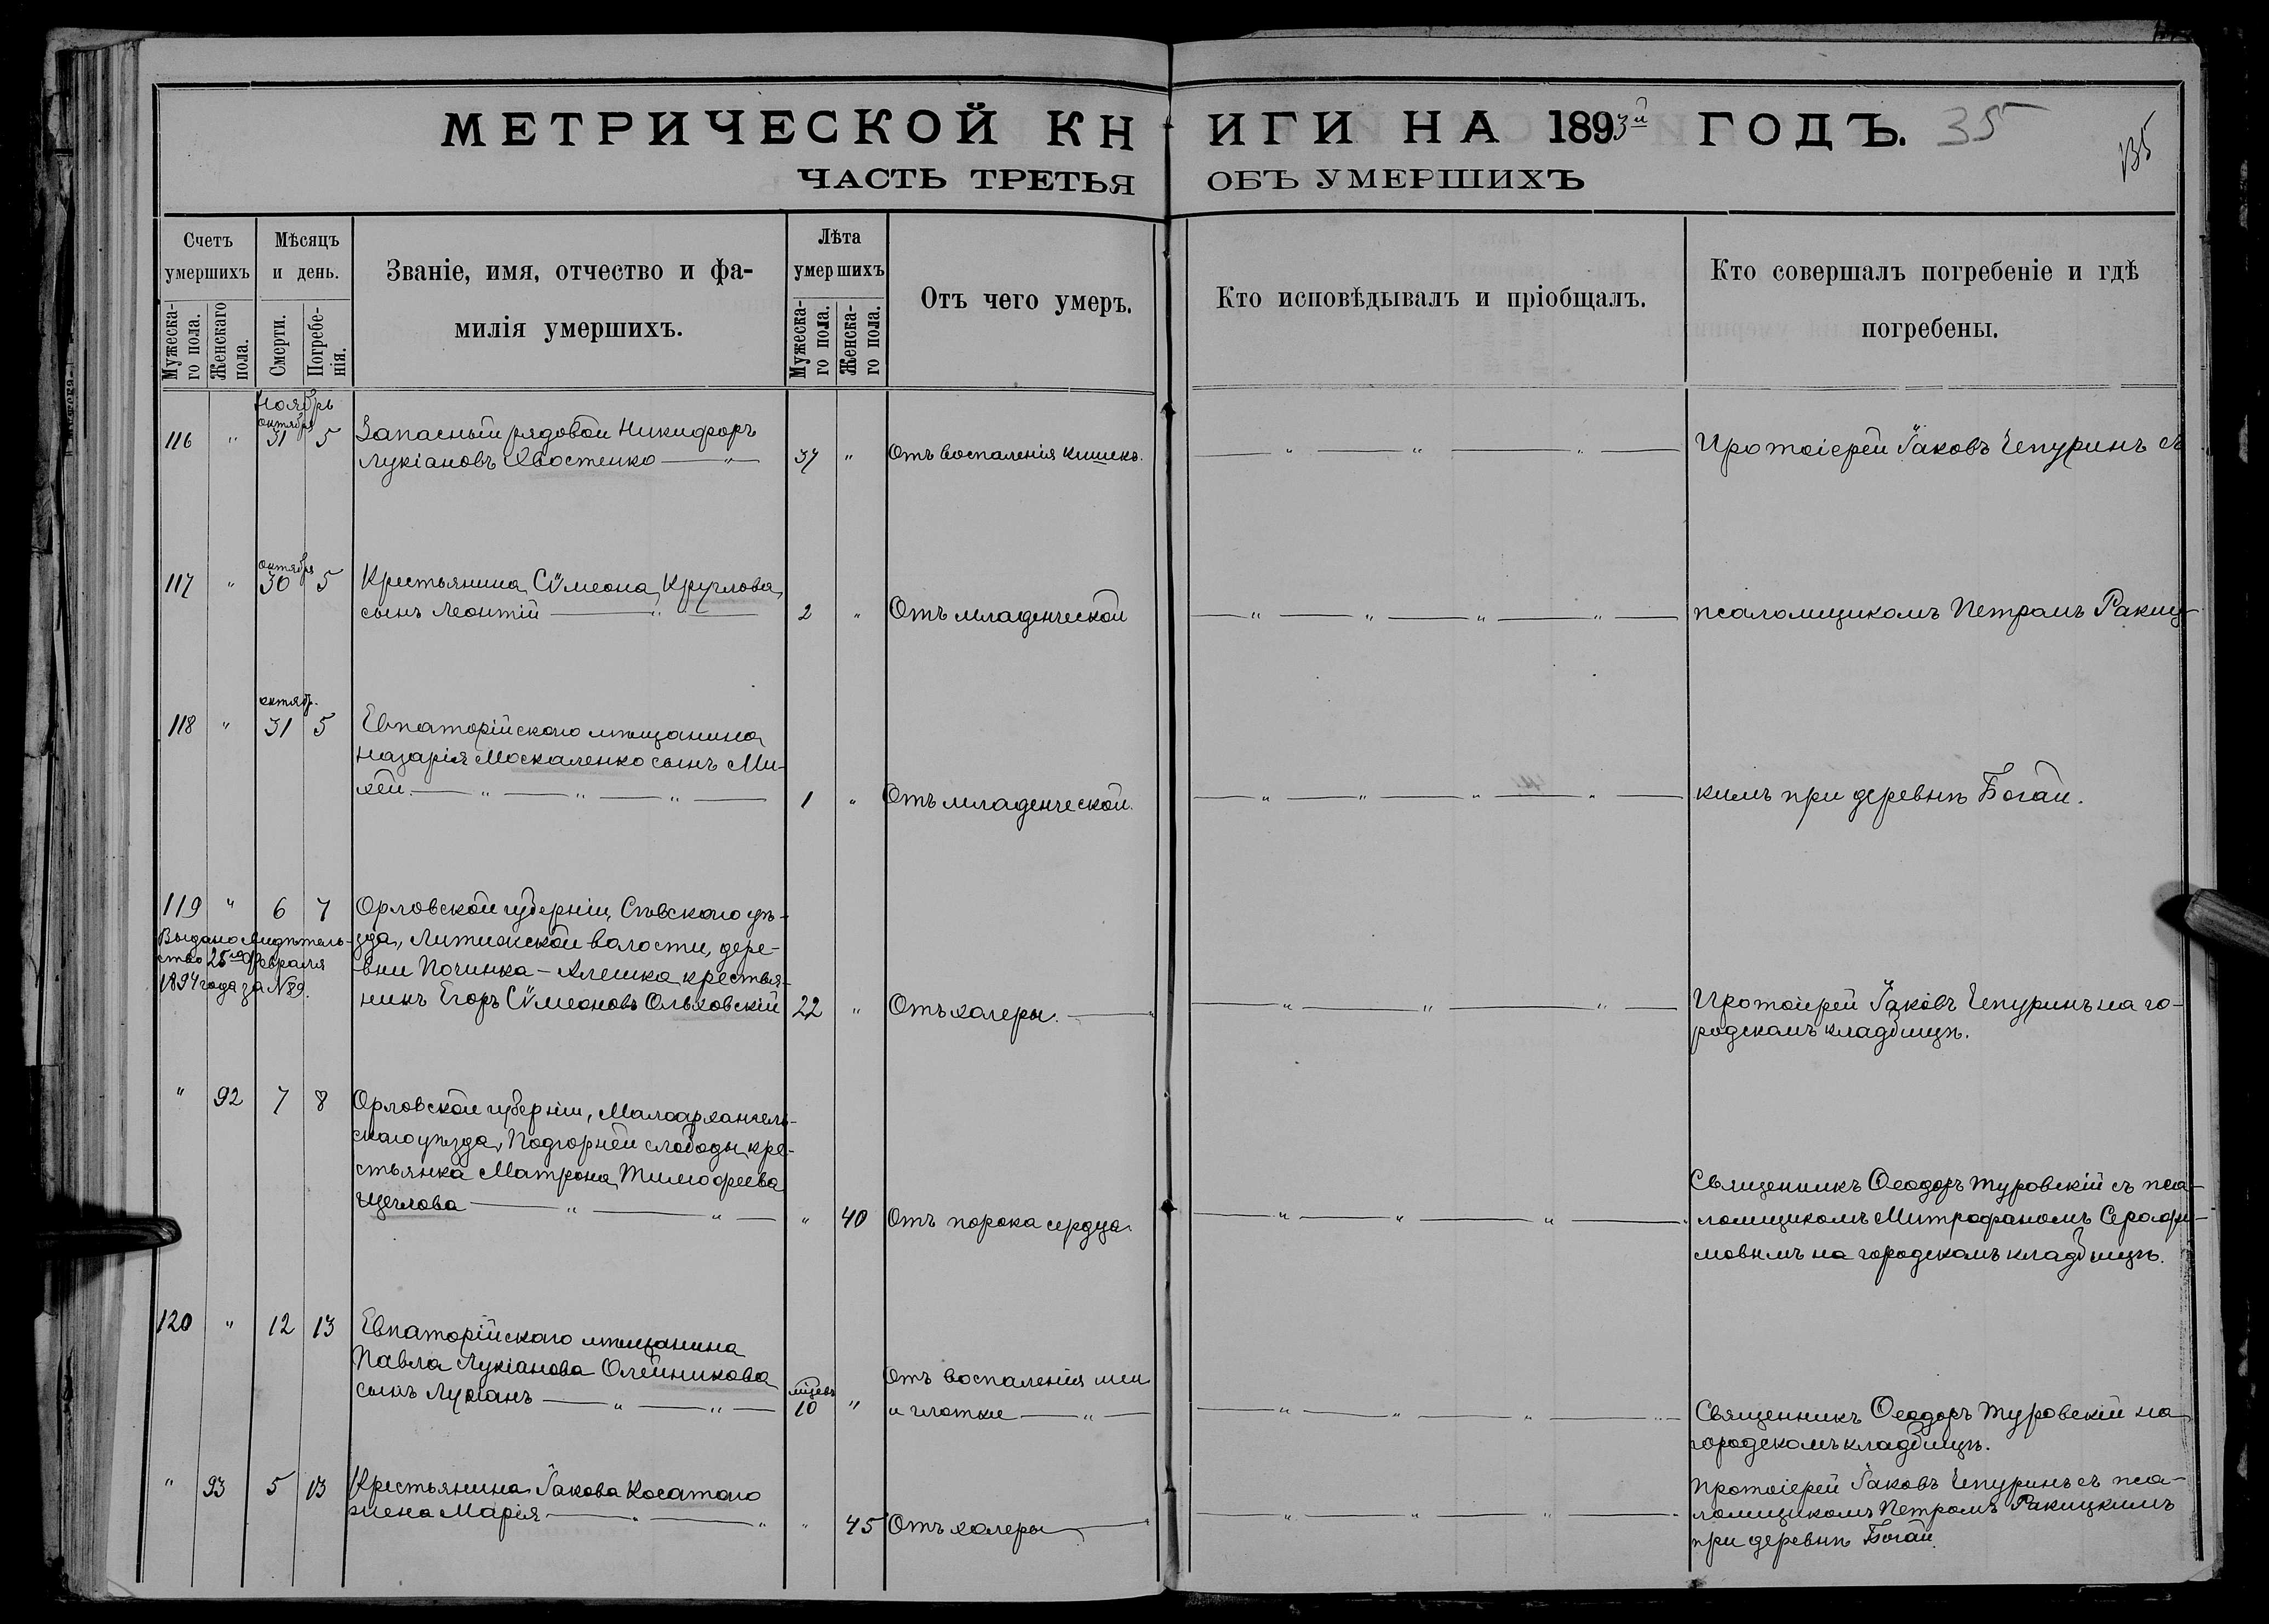 МЕТРИЧЕСКОЙ КНИГИ НА 1893й ГОДЪ. 35
135
ЧАСТЬ ТРЕТЬЯ ОБЪ УМЕРШИХЪ
Счетъ умершихъ
Мужеска-
го пола.
Женскаго
пола.
Мѣсяцъ и день.
Смерти.
Погребе-
нія.
Званіе, имя, отчество и фа-
милія умершихъ.
Лѣта умершихъ
Мужеска-
го пола.
Женска-
го пола.
Отъ чего умеръ.
Кто исповѣдывалъ и пріобщалъ.
Кто совершалъ погребеніе и гдѣ
погребены.
Ноябрь
октября
116 " 31 5 Запасный рядовой Никифоръ
Лукіановъ Хвостенко — " 37 " Отъ воспаленія кишекъ. — " — " — " — Протоіерей Іаковъ Чепуринъ съ
октября
117 " 30 5 Крестьянина Сѵмеона Круглова
сынъ Леонтій — " — 2 " Отъ младенческой — " — " — " — " — псаломщикомъ Петромъ Ракиц-
октяб.
118 " 31 5 Евпаторійскаго мѣщанина
Назарія Москаленко сынъ Ми-
хей. — " — " — " — 1 " Отъ младенческой. — " — " — " — " — кимъ при деревнѣ Богай.
119 " 6 7 Орловской губерніи, Сѣвскаго уѣ-
зда, Литижской волости, дере-
вни Починка-Алешка крестья-
никъ Егоръ Сѵмеоновъ Ольховскій 22 " Отъ холеры. — " — " — " — " — Протоіерей Іаковъ Чепуринъ на го-
родскомъ кладбищѣ.
Выдано свидѣтель-
ство 25го февраля
1894 года за №89.
" 92 7 8 Орловской губерніи, Малоархангель-
скаго уѣзда, Подгорней слободы кре-
стьянка Матрона Тимофеева
Щеглова — " — " — " 40 Отъ порока сердца. — " — " — " — Священникъ Ѳеодоръ Туровскій съ пса-
ломщикомъ Митрофаномъ Серафи-
мовымъ на городскомъ кладбищѣ.
120 " 12 13 Евпаторійскаго мѣщанина
Павла Лукіанова Олейникова
сынъ Лукіанъ — " — " — 10 " Отъ воспаленія шеи
и глотки — " — — " — " — " — " — Священникъ Ѳеодоръ Туровскій на
городскомъ кладбищѣ.
" 93 5 13 Крестьянина Іакова Косатого
жена Марія — " — " " 45 Отъ холеры — " — " — " — " — " Протоіерей Іаковъ Чепуринъ съ пса-
ломщикомъ Петромъ Ракицкимъ
при деревнѣ Богай.